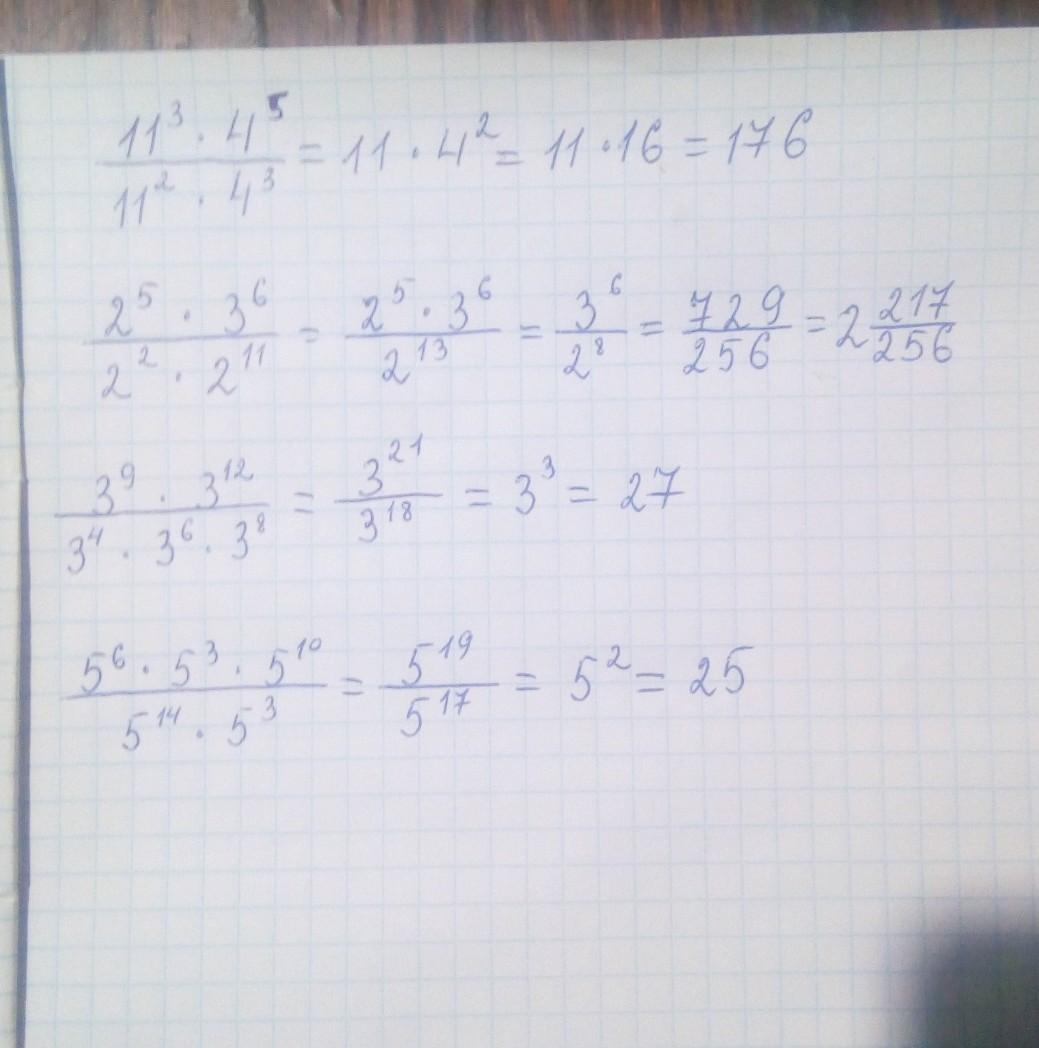 11³ · 4⁵ / 11² · 4³ = 11 · 4² = 11 · 16 = 176
2⁵ · 3⁶ / 2² · 2¹¹ = 2⁵ · 3⁶ / 2¹³ = 3⁶ / 2⁸ = 729 / 256 = 2 217/256
3⁹ · 3¹² / 3⁴ · 3⁶ · 3⁸ = 3²¹ / 3¹⁸ = 3³ = 27
5⁶ · 5³ · 5¹⁰ / 5¹⁴ · 5³ = 5¹⁹ / 5¹⁷ = 5² = 25